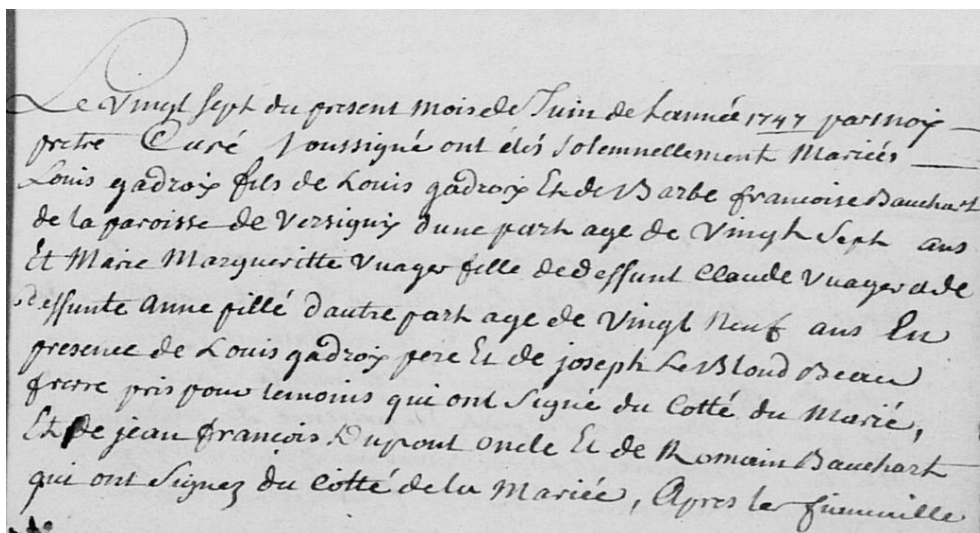 Le vingt sept du present mois de Juin de Lannée 1747 par moy
pretre Curé soussigné ont étés solemnellement Mariés
Louis gadroix fils de Louis gadroix Et de Barbe francoise Bauchart
de la paroisse de Versigny dune part age de Vingt Sept ans
Et Marie Margueritte Vuager fille de deffunt Claude Vuager et de
deffunte Anne pillé d'autre part age de Vingt Neuf ans En
presence de Louis gadroix pere Et de joseph Le Blond Beau
frerre pris pour temoins qui ont Signé du Cotté du Marié,
Et de jean francois Dupont oncle Et de Romain Bauchart
qui ont Signez du Cotté de la Mariée, Apres les fiancaille